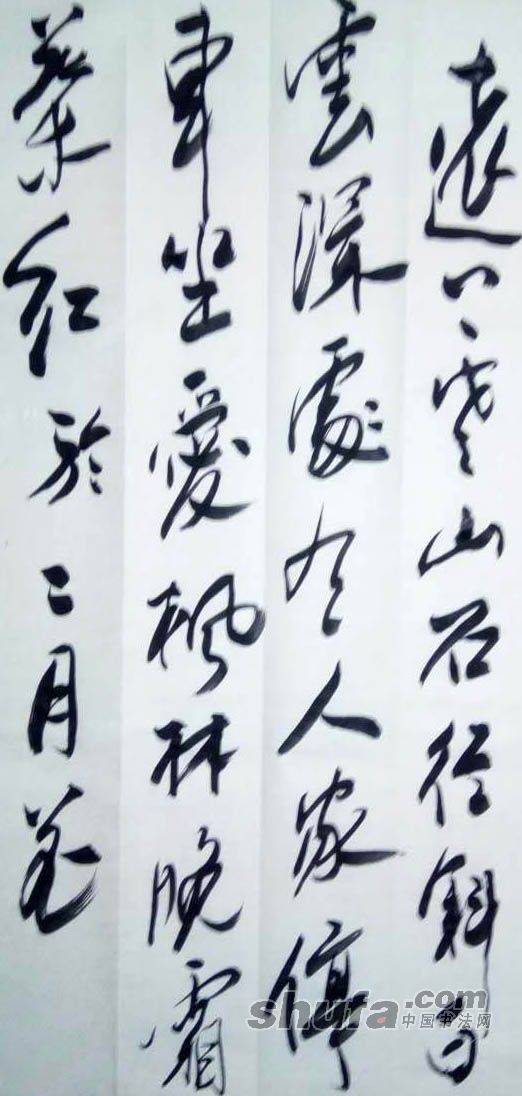 遠上寒山石径斜白
雲深處有人家停
車坐愛楓林晚霜
葉红於二月花
shufa.com
中国书法网